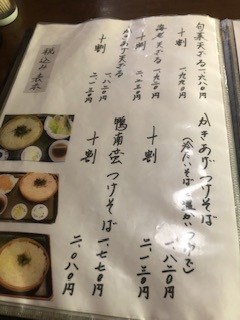 旬菜天ざる 一、六八〇円
十割 一、九九〇円
海老天ざる 一、九二〇円
十割 二、二三〇円
かきあげ天ざる 一、八二〇円
十割 二、一三〇円
税込み表示
かきあげつけそば
(冷たいそば・温かいつゆで)
一、八二〇円
十割 二、一三〇円
鴨南蛮つけそば
一、七七〇円
十割 二、〇八〇円